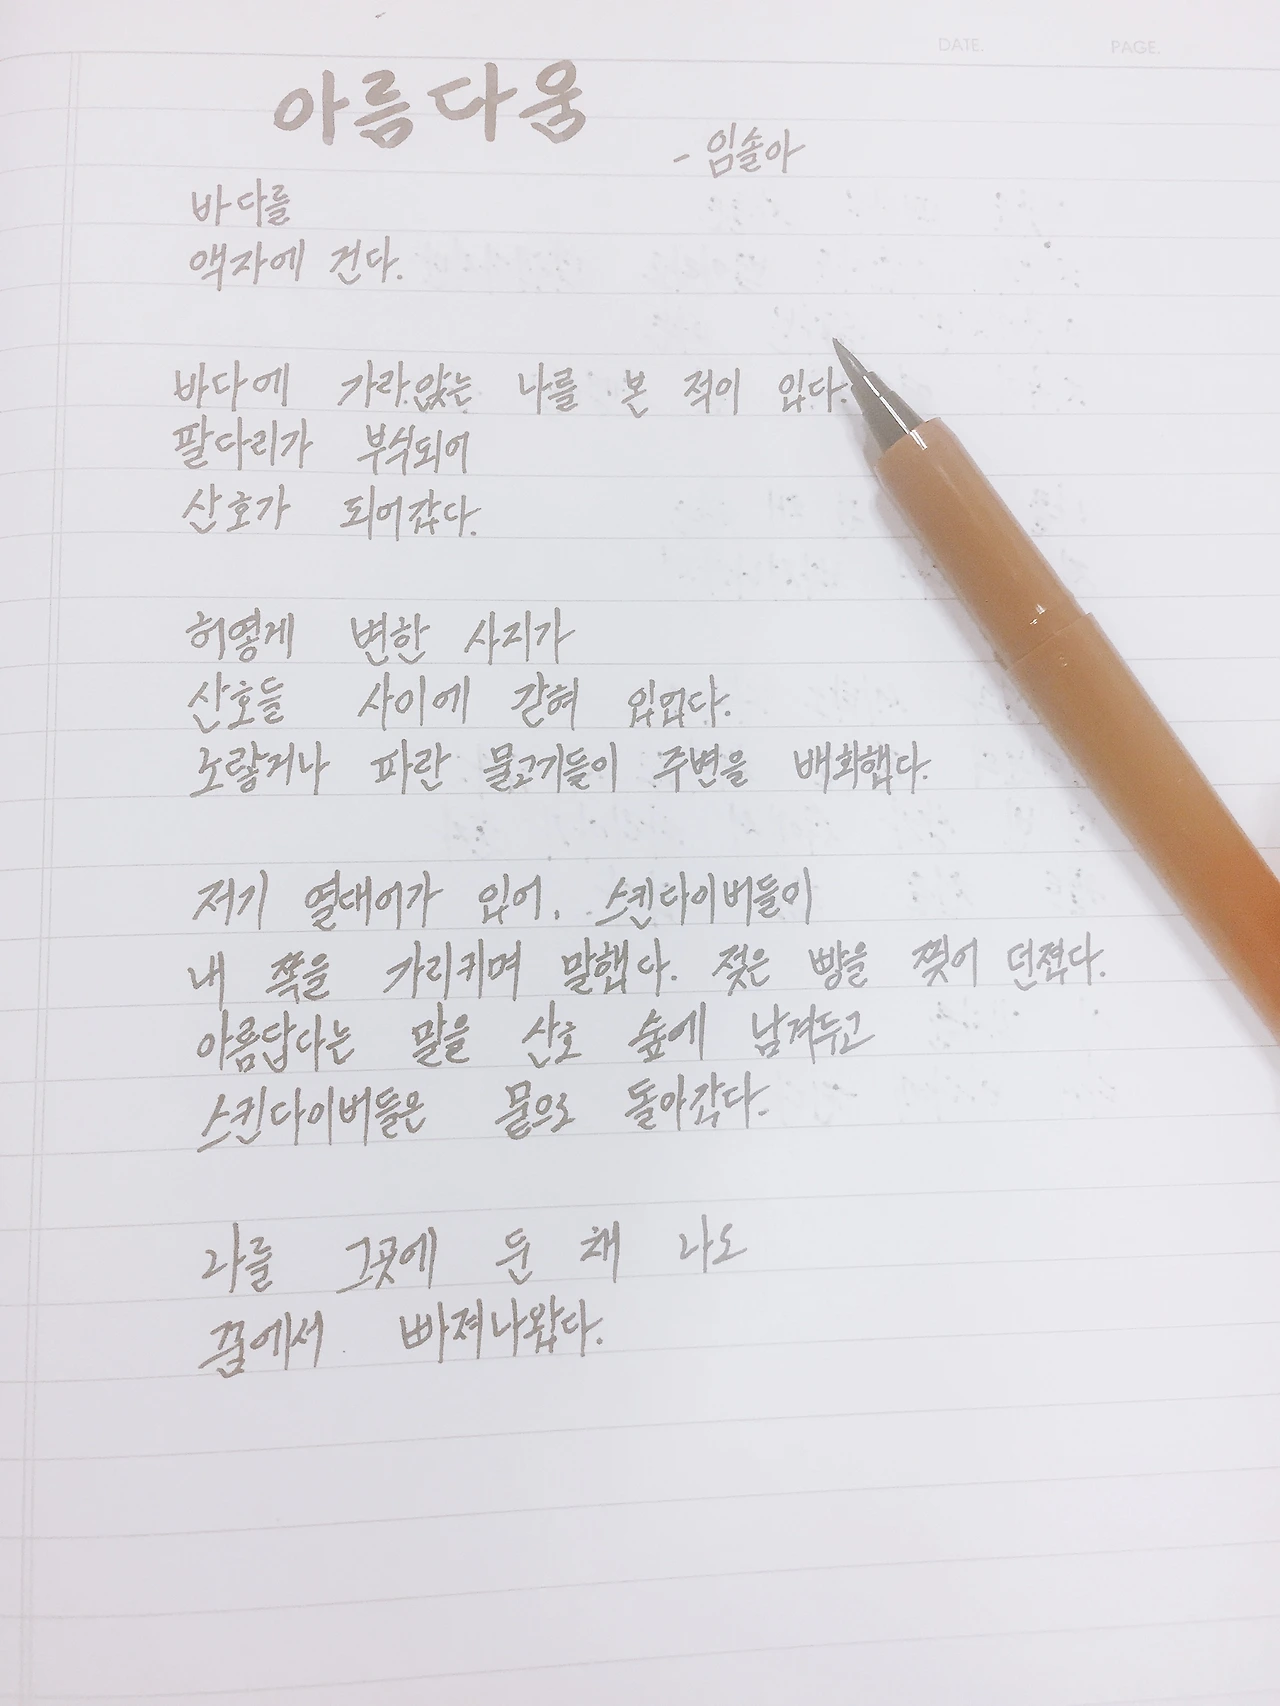 DATE. PAGE.
아름다움
- 임솔아
바다를
액자에 건다.
바다에 가라앉는 나를 본 적이 있다.
팔다리가 부식되어
산호가 되어갔다.
허옇게 변한 사지가
산호들 사이에 갇혀 있었다.
노랗거나 파란 물고기들이 주변을 배회했다.
저기 열대어가 있어. 스킨다이버들이
내 쪽을 가리키며 말했다. 젖은 빵을 찢어 던졌다.
아름답다는 말을 산호 숲에 남겨두고
스킨다이버들은 뭍으로 돌아갔다.
나를 그곳에 둔 채 나도
꿈에서 빠져나왔다.